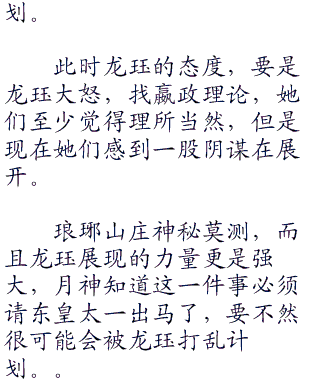 划。
此时龙珏的态度，要是
龙珏大怒，找嬴政理论，她
们至少觉得理所当然，但是
现在她们感到一股阴谋在展
开。
琅琊山庄神秘莫测，而
且龙珏展现的力量更是强
大，月神知道这一件事必须
请东皇太一出马了，要不然
很可能会被龙珏打乱计
划。。